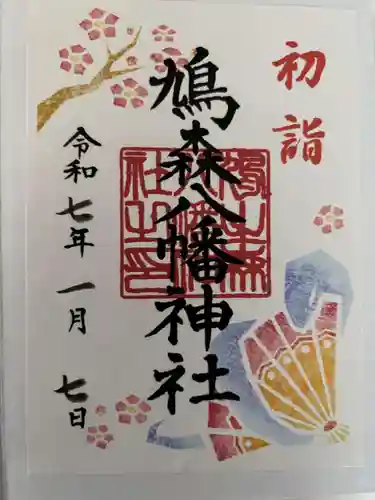 初詣
鳩森八幡神社
令和七年 一月 七日